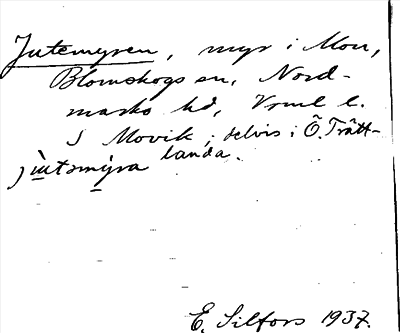 Jutemyren, myr i Mon,
Blomskogs sn, Nord-
marks hd, Vrml l.
S Movik, delvis i Ö. Trätt-
landa.
jùtəmýra
E. Silfors 1937.